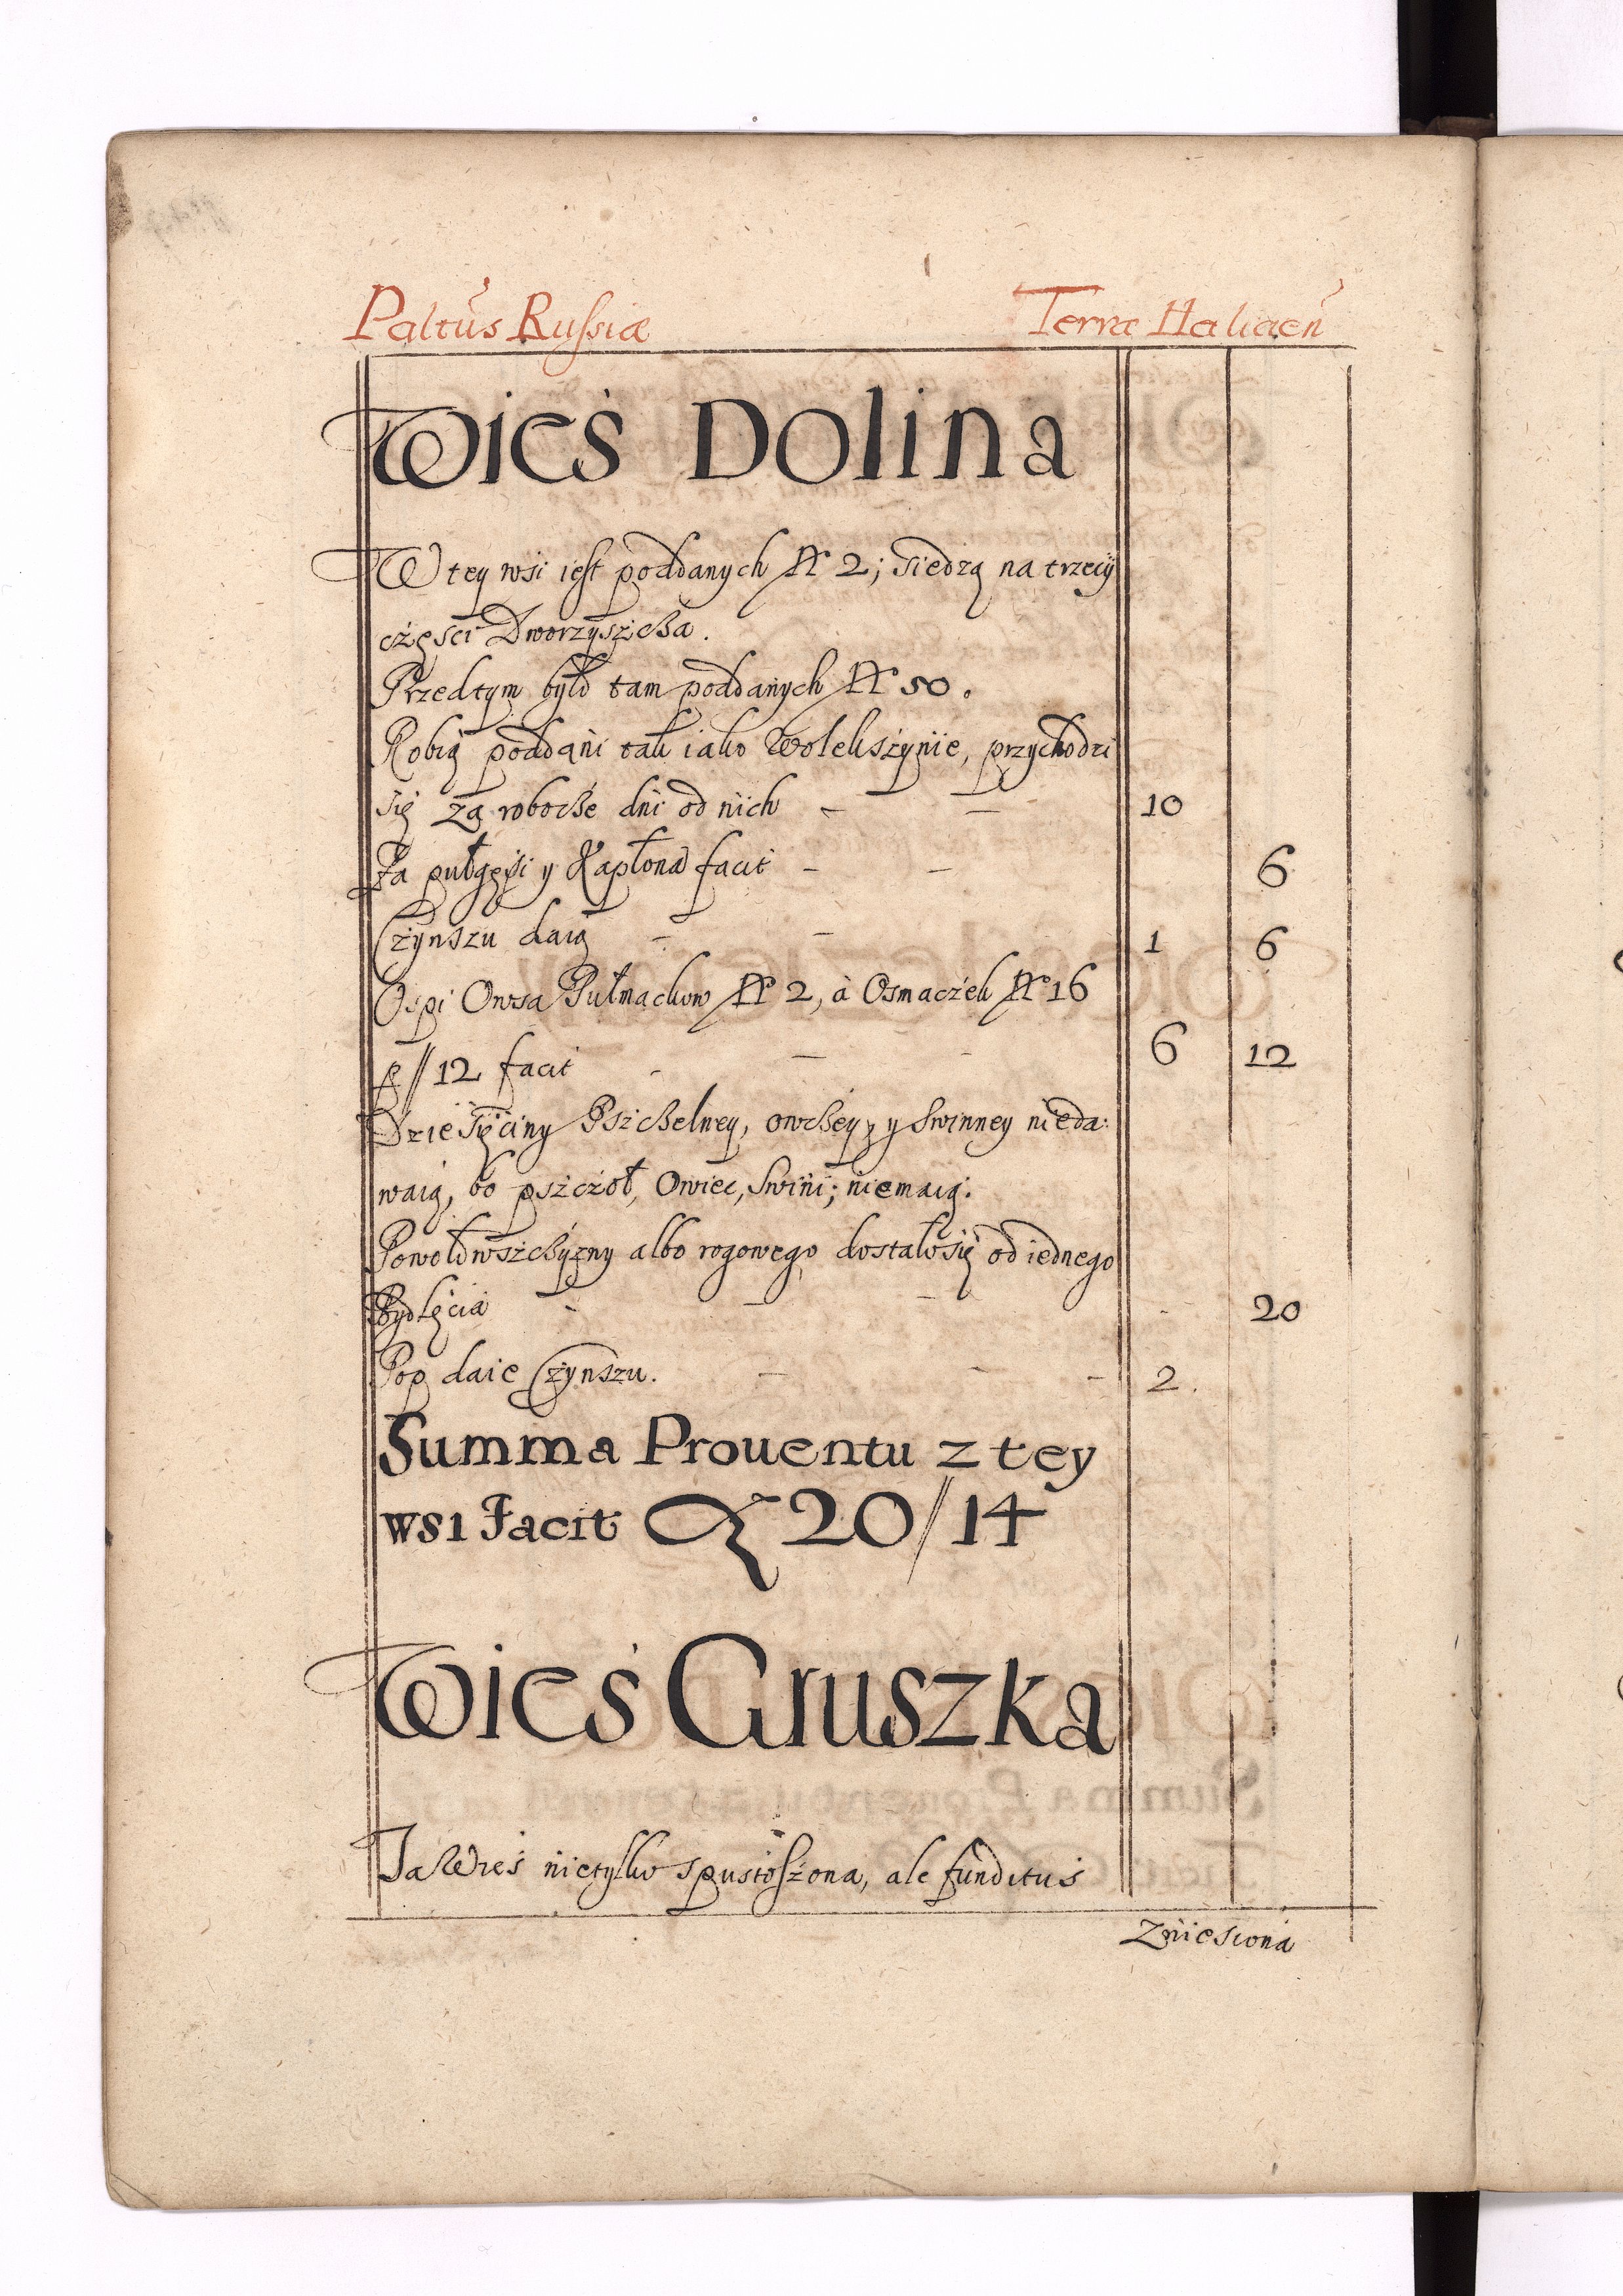 Paltus Russiæ Terræ Halicien
Wieś Dolina
W tey wsi iest poddanych Nr 2; siedzą na trzeciy
częsci Dworzyszcza.
Przedtym było tam poddanych Nr 50.
Robią poddani tak iako Wolekszynie, przychodzi
się za robocze dni od nich - - 10
Za pułgęsi y Kapłona facit - - 6
Czynszu daią - - 1 6
Ospi Owsa Pułmackow Nr 2, à Osmaczek Nr 16
p // 12 facit - - - 6 12
Dziesięciny Pszczelney, owczey, y swinney nieda:
waią, bo pszczoł, Owiec, swini; niemaią.
Powołowszczyzny albo rogowego dostało się od iednego
Bydlęcia - - - - 20
Pop daie Czynszu. - - - 2.
Summa Prouentu z tey
wsi Facit 20/14
Wieś Gruszka
Ta Wieś nietylko spustoszona, ale funditus
Zniesiona